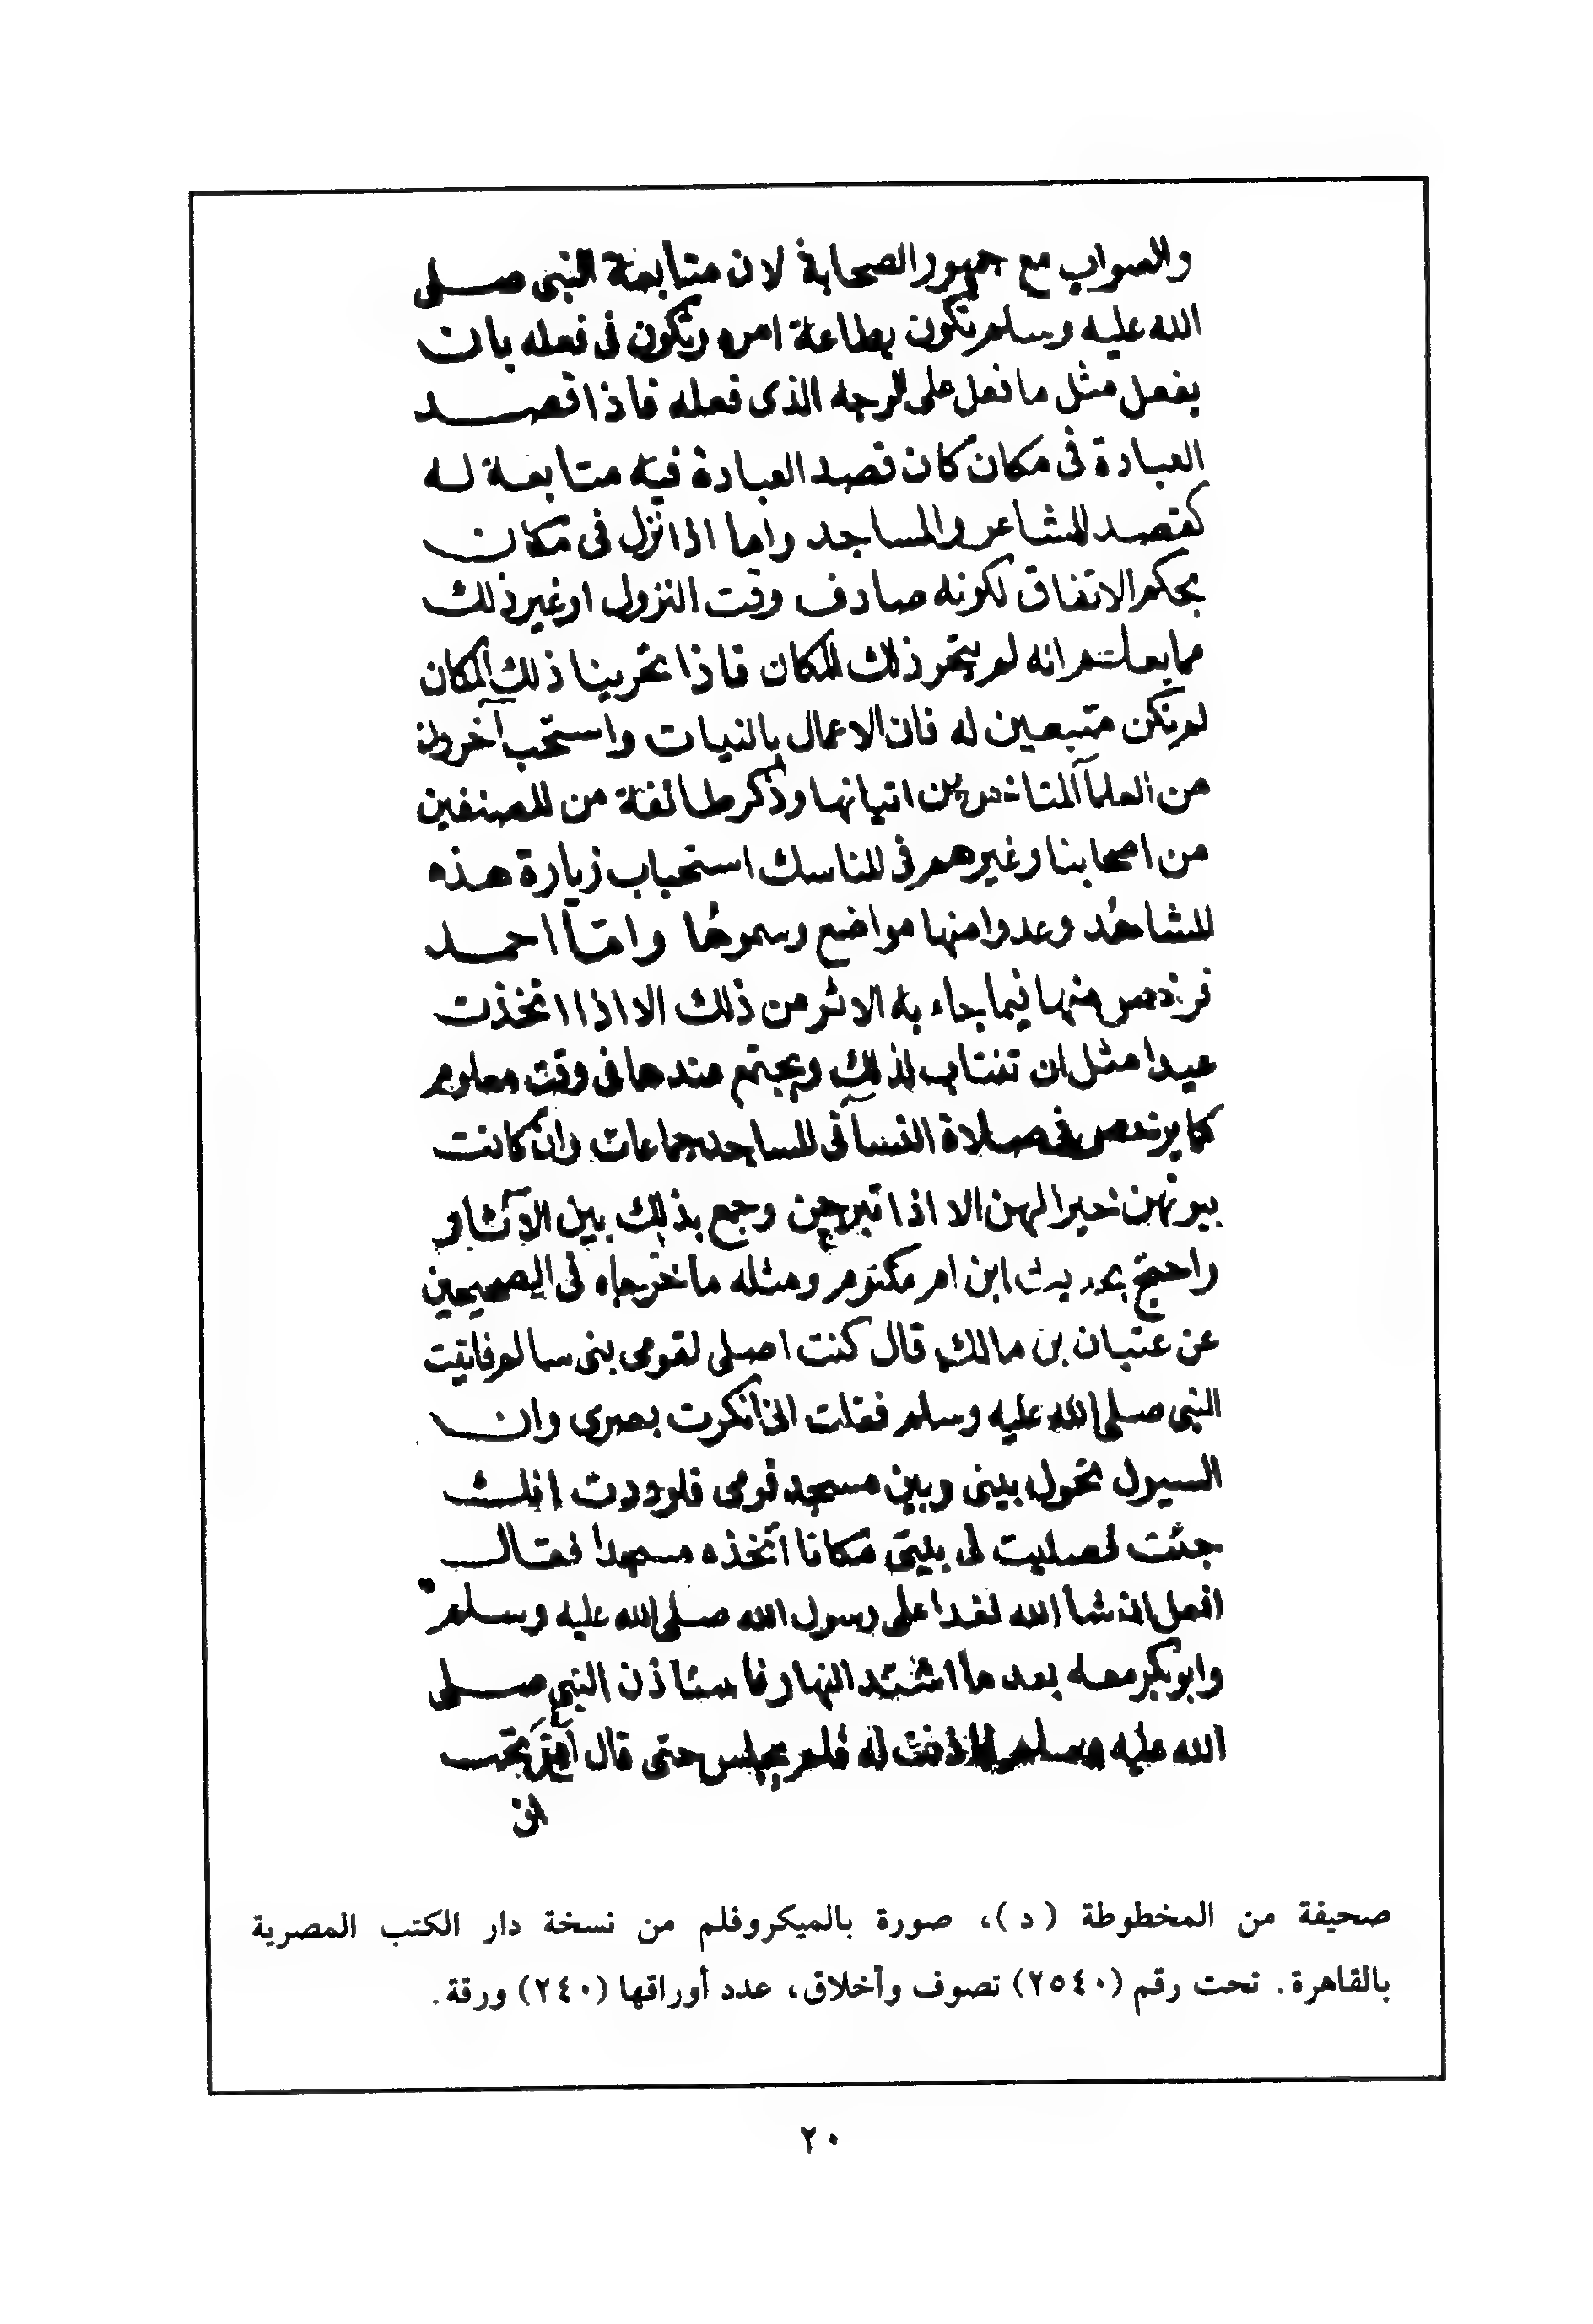 والصواب مع جمهور الصحابة لان متابعة النبى صلى
الله عليه وسلم تكون بطاعة امره وتكون فى فعله بان
يفعل مثل ما فعل على الوجه الذى فعله فاذا قصد
العبادة فى مكان كان قصد العبادة فيه متابعة له
كقصد المشاعر والمساجد واما اذا نزل فى مكان
بحكم الاتفاق لكونه صادف وقت النزول او غير ذلك
مما يعلم انه لم يتحر ذلك المكان فاذا تحرينا ذلك المكان
لم نكن متبعين له فان الاعمال بالنيات واستحب آخر
من العلمآ المتاخرين اتيانها وذكر طائفة من المصنفين
من اصحابنا وغيرهم فى المناسك استحباب زيارة هذه
المشاهد وعدوا منها مواضع وسموها وامّا احمد
فرخص منها فيما جاء به الاثر من ذلك الا اذا اتخذت
عيدا مثل ان تنتاب لذلك ويجتمع عندها فى وقت معلوم
كما يرخص فى صلاة النسآ فى المساجد جماعات وان كانت
بيوتهن خيرا لهن الا اذا تبرجن وجمع بذلك بين الآثار
واحتج بحديث ابن ام مكتوم ومثله ما خرجاه فى الصحيحين
عن عتبان بن مالك قال كنت اصلى لقومى بنى سالم فاتيت
النبى صلى الله عليه وسلم فقلت انى انكرت بصرى وان
السيول تحول بينى وبين مسجد قومى فلوددت انك
جئت فصليت فى بيتى مكانا اتخذه مسجدا فقال
افعل ان شا الله فغدا على رسول الله صلى الله عليه وسلم
وابو بكر معه بعد ما اشتد النهار فاستاذن النبى صلى
الله عليه وسلم فاذنت له فلم يجلس حتى قال اين تحب
ان
صحيفة من المخطوطة (د)، صورة بالميكروفلم من نسخة دار الكتب المصرية
بالقاهرة. تحت رقم (٢٥٤٠) تصوف وأخلاق، عدد أوراقها (٢٤٠) ورقة.
٢٠